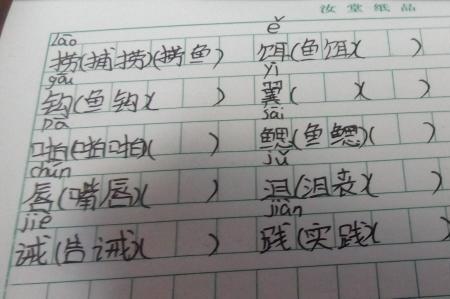 纸 品
lāo ě
捞(捕捞)(捞鱼) 饵(鱼饵)( )
gōu yì
钩(鱼钩)( ) 翼( )( )
pā sāi
啪(啪啪)( ) 鳃(鱼鳃)( )
chún jǔ
唇(嘴唇)( ) 沮(沮丧)( )
jiè jiàn
诫(告诫)( ) 践(实践)( )